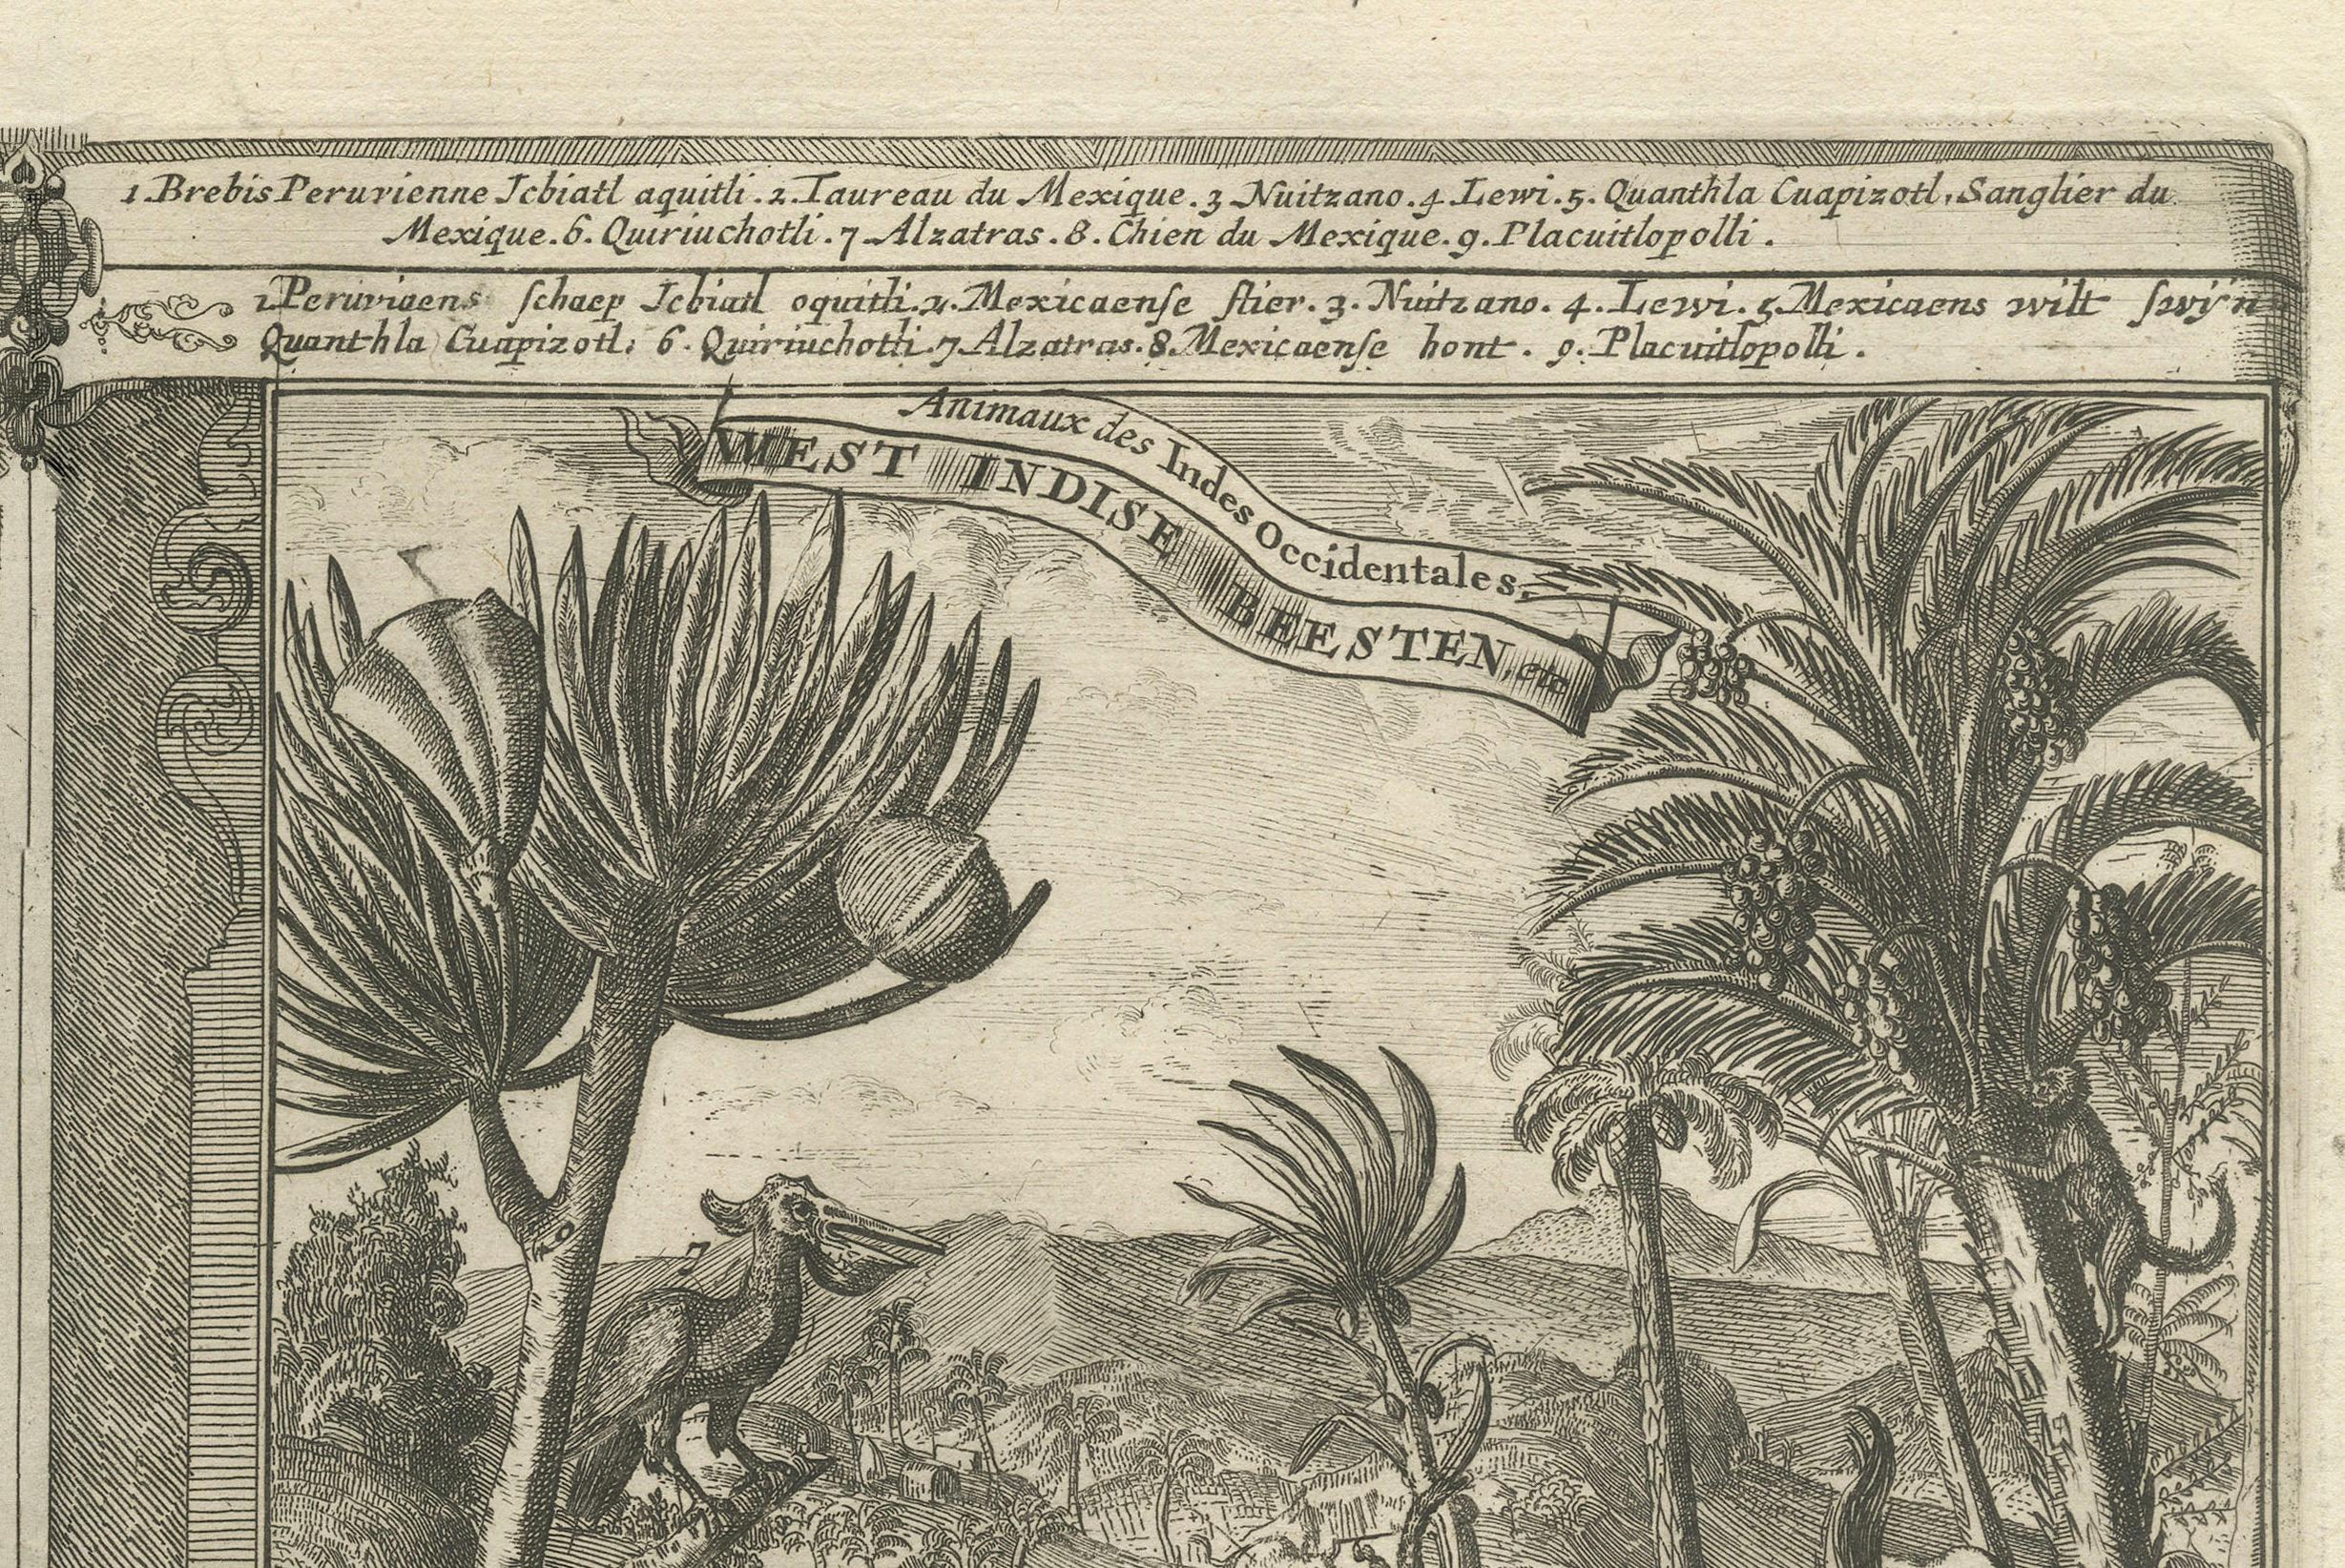 1. Brebis Peruvienne Icbiatl aquitli. 2. Taureau du Mexique. 3 Nuitzano. 4 Lewi. 5. Quanthla Cuapizotl, Sanglier du
Mexique. 6. Quiriuchotli. 7 Alzatras. 8. Chien du Mexique. 9. Placuitlopolli.
1 Peruviaens ſchaep Icbiatl oquitli. 2. Mexicaenſe ſtier. 3. Nuitzano. 4. Lewi. 5. Mexicaens wilt ſwÿn
Quanthla Cuapizotl; 6. Quiriuchotli. 7. Alzatras. 8. Mexicaenſe hont. 9. Placuitlopolli.
Animaux des Indes Occidentales,
WEST INDISE BEESTEN, etc